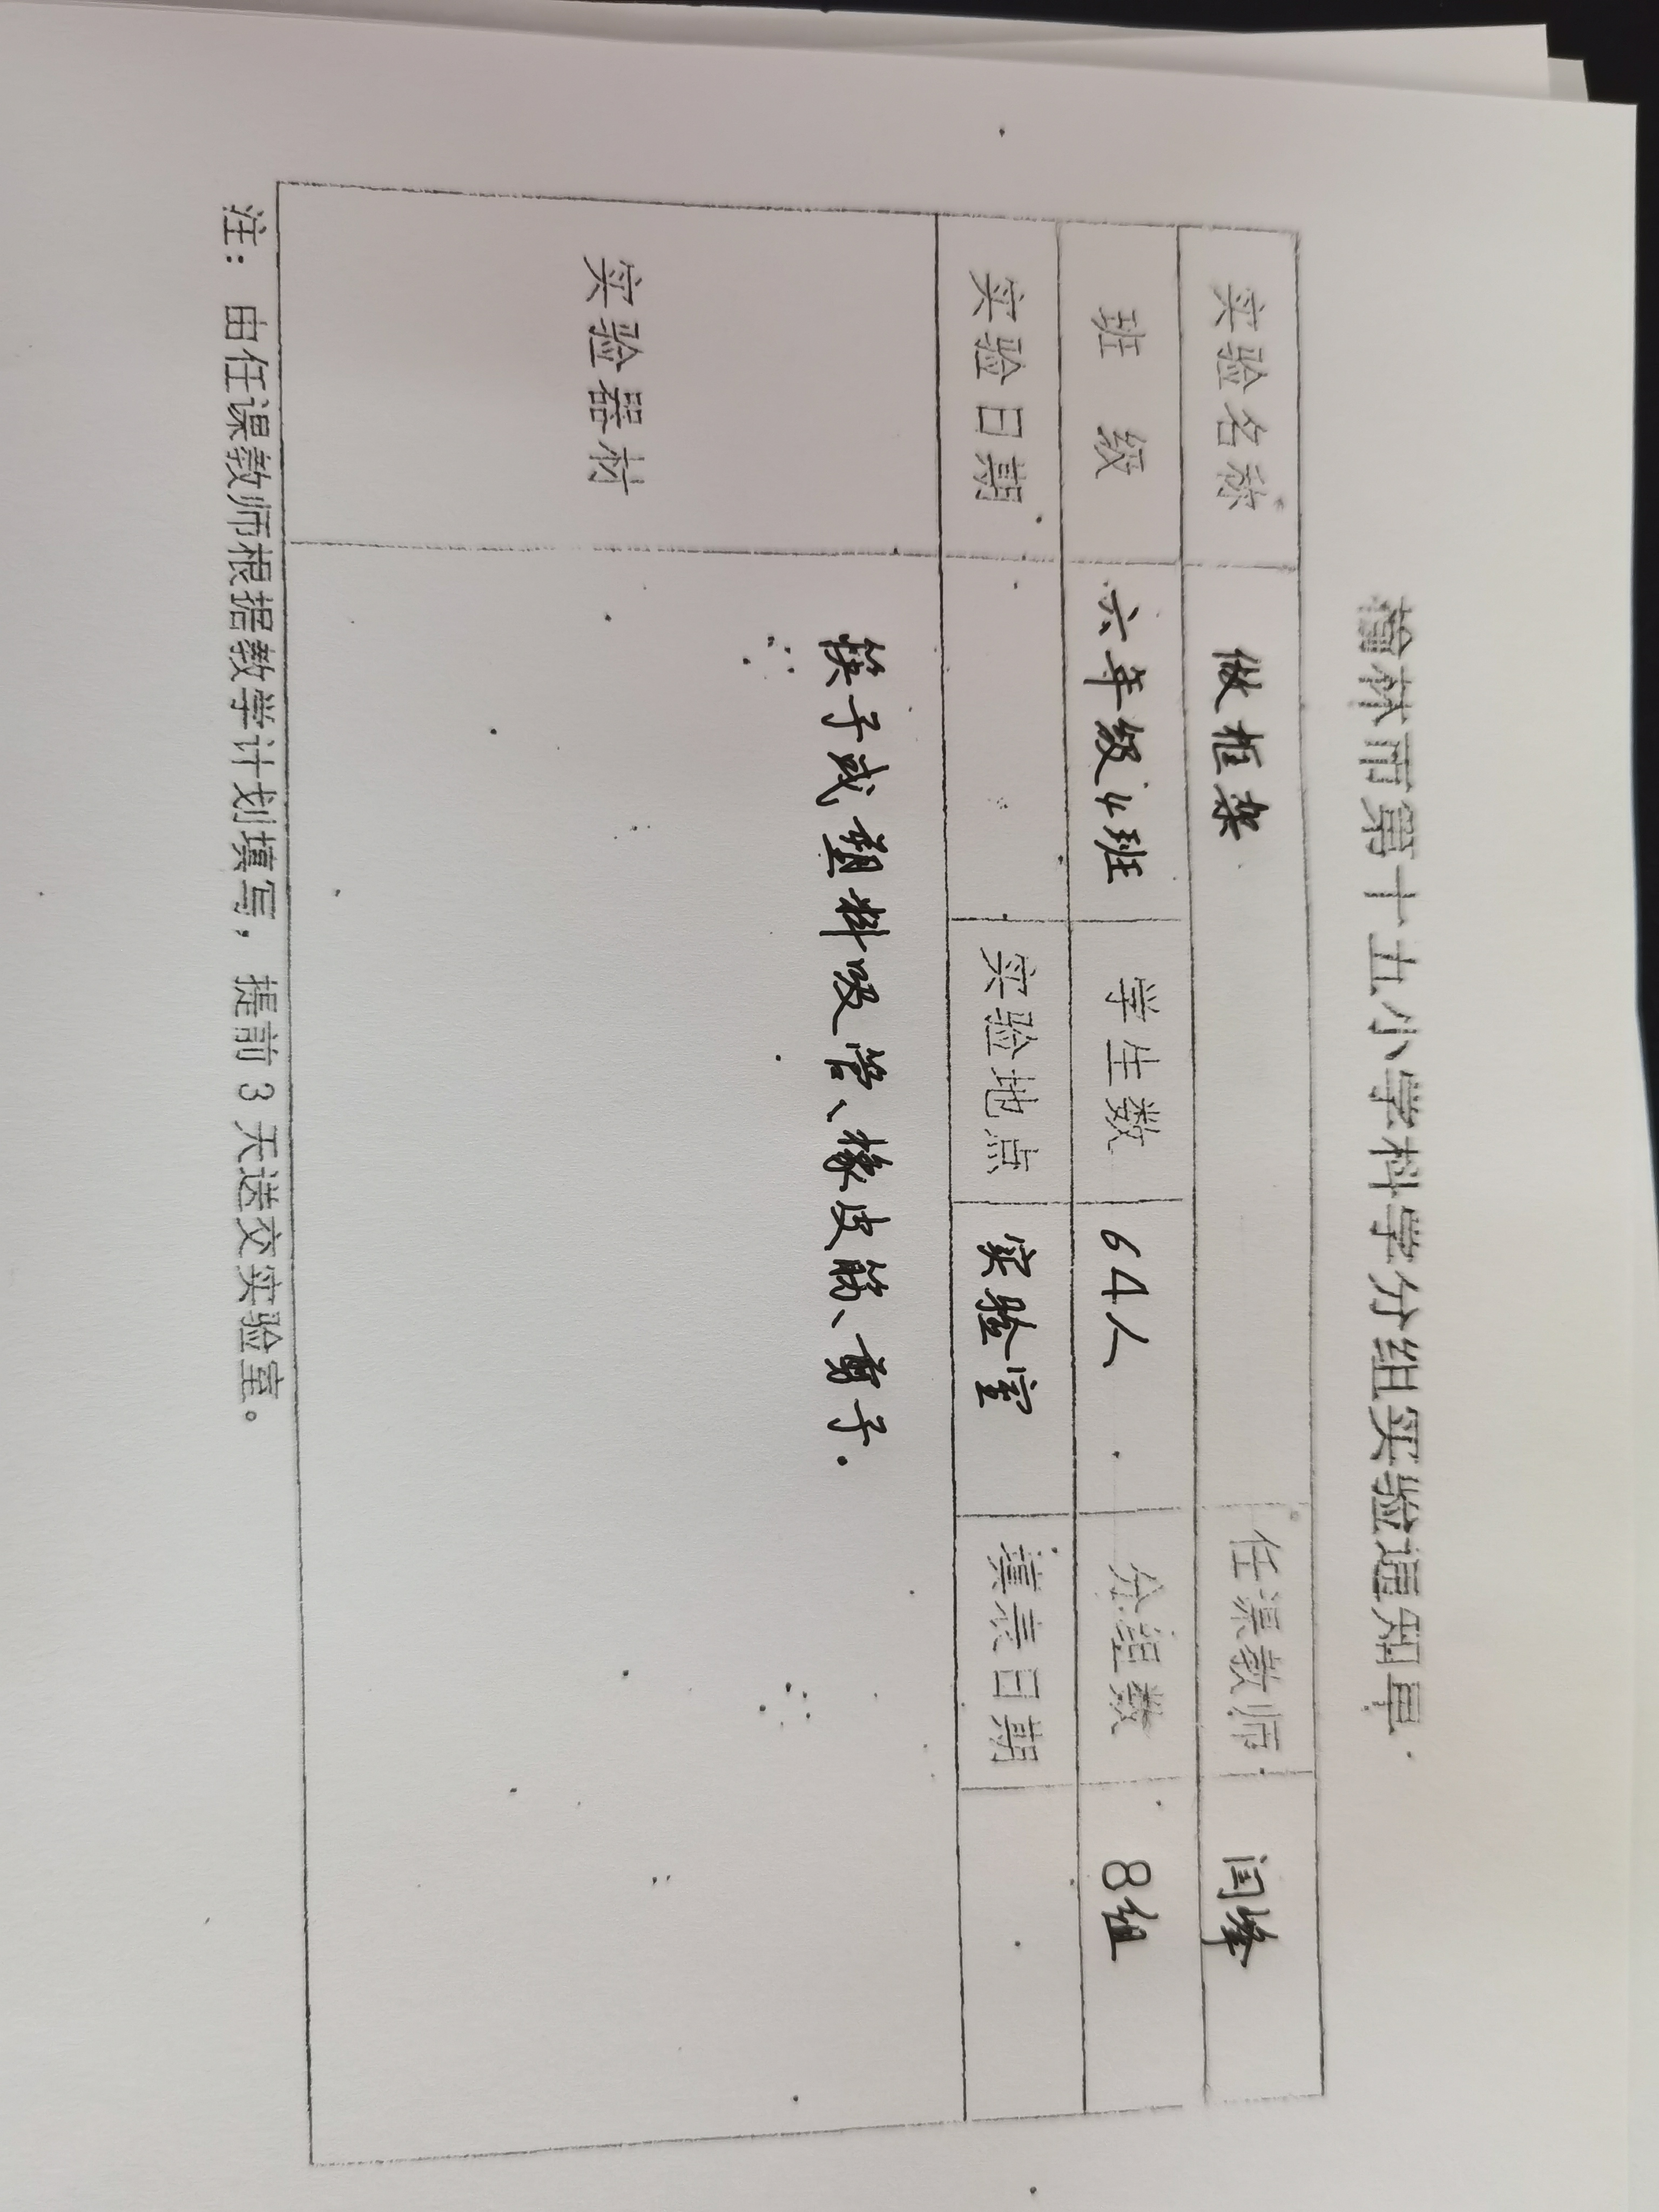 榆林市第十五小学科学分组实验通知单
实验名称 做框架 任课教师 闫峰
班级 六年级4班 学生数 64人 分组数 8组
实验日期 实验地点 实验室 填表日期
实验器材 筷子或塑料吸管、橡皮筋、剪子.
注：由任课教师根据教学计划填写，提前3天送交实验室。